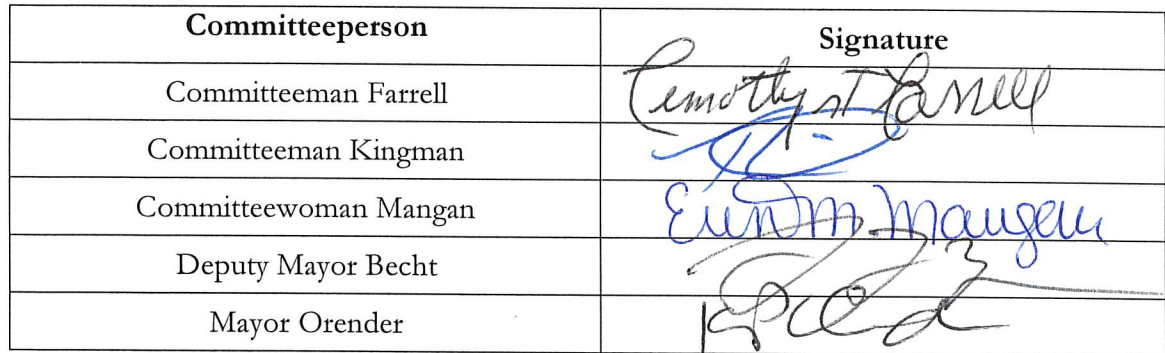 Committeeperson Signature
Committeeman Farrell Timothy Farrell
Committeeman Kingman
Committeewoman Mangan Erin M. Mangan
Deputy Mayor Becht
Mayor Orender